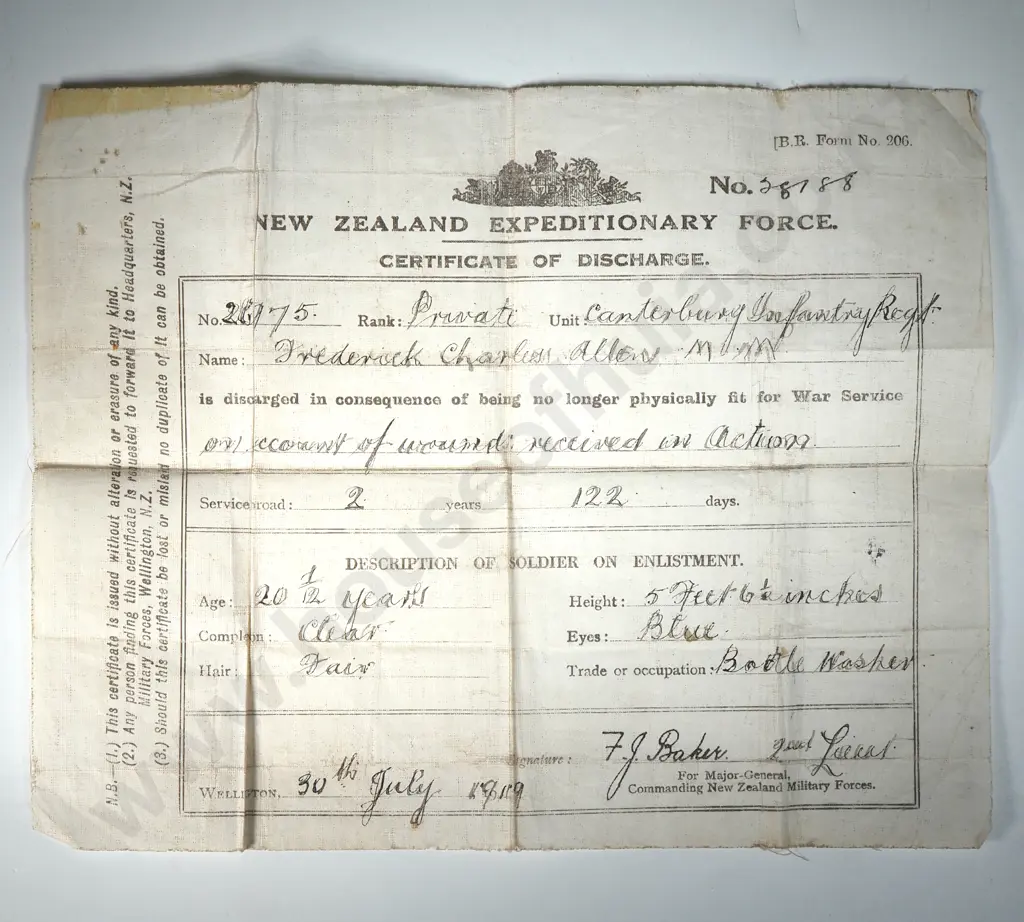 [B.R. Form No. 206.
No. 28188
NEW ZEALAND EXPEDITIONARY FORCE.
CERTIFICATE OF DISCHARGE.
No. Rank: Private Unit: Canterbury Infantry Regt.
Name: Frederick Charles Allen M M
is discarged in consequence of being no longer physically fit for War Service
on account of wounds received in Action.
Service road: 2 years 122 days.
DESCRIPTION OF SOLDIER ON ENLISTMENT.
Age: 20 1/12 years Height: 5 Feet 6½ inches
Complon: Clear Eyes: Blue.
Hair: Fair Trade or occupation: Bottle Washer
Signature: F. J. Baker. 2nd Lieut.
For Major-General,
Commanding New Zealand Military Forces.
WELLINGTON, 30th July 1919
N.B.—(1.) This certificate is issued without alteration or erasure of any kind.
(2.) Any person finding this certificate is requested to forward it to Headquarters, N.Z.
Military Forces, Wellington, N.Z.
(3.) Should this certificate be lost or mislaid no duplicate of it can be obtained.
www.houseofhuia.co